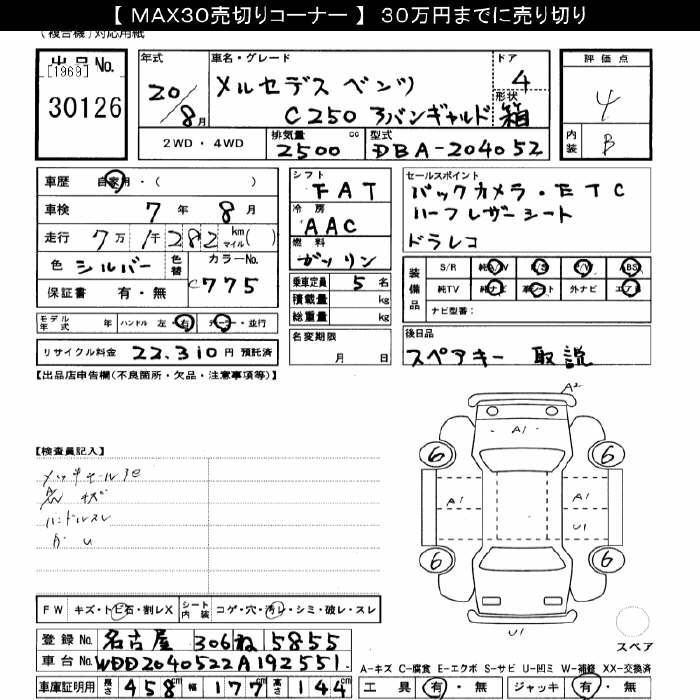 【 MAX30売切りコーナー 】 30万円までに売り切り
(複合機)対応用紙
出品No. 年式 車名・グレード ドア 評価点
[1969] メルセデス ベンツ 4
30126 20/8月 C250 アバンギャルド 形状 箱 4
2WD・4WD 排気量 cc 型式 内装 B
2500 DBA-204052
車歴 自家用・( ) シフト FAT セールスポイント
車検 7年 8月 冷房 AAC バックカメラ・ETC
走行 7万 1千 282 km マイル ( ) 燃料 ガソリン ハーフレザーシート
色 シルバー 色替 カラーNo. ドラレコ
保証書 有・無 C775 乗車定員 5名
積載量 kg
総重量 kg
装備品 S/R 純A/V P/S P/W ABS
純TV 純ナビ 革シート 外ナビ エアB
ナビ型番:
モデル年式 年 ハンドル 左・右 ディーラー・並行 名変期限 月 日 後日品
リサイクル料金 22,310円 預託済 スペアキー 取説
【出品店申告欄(不良箇所・欠品・注意事項等)】
A2
A1
6 6
A1 A1
U1
6 6
U1
【検査員記入】
ハンドルスレ
FW キズ・トビ石・割レX シート内装 コゲ・穴・汚レ・シミ・破レ・スレ
登録No. 名古屋 306 ね 5855
車台No. WDD2040522A192551 スペア
A−キズ C−腐食 E−エクボ S−サビ U−凹ミ W−補修 XX−交換済
車庫証明用 長さ 458cm 幅 177cm 高さ 144cm 工具 有・無 ジャッキ 有・無